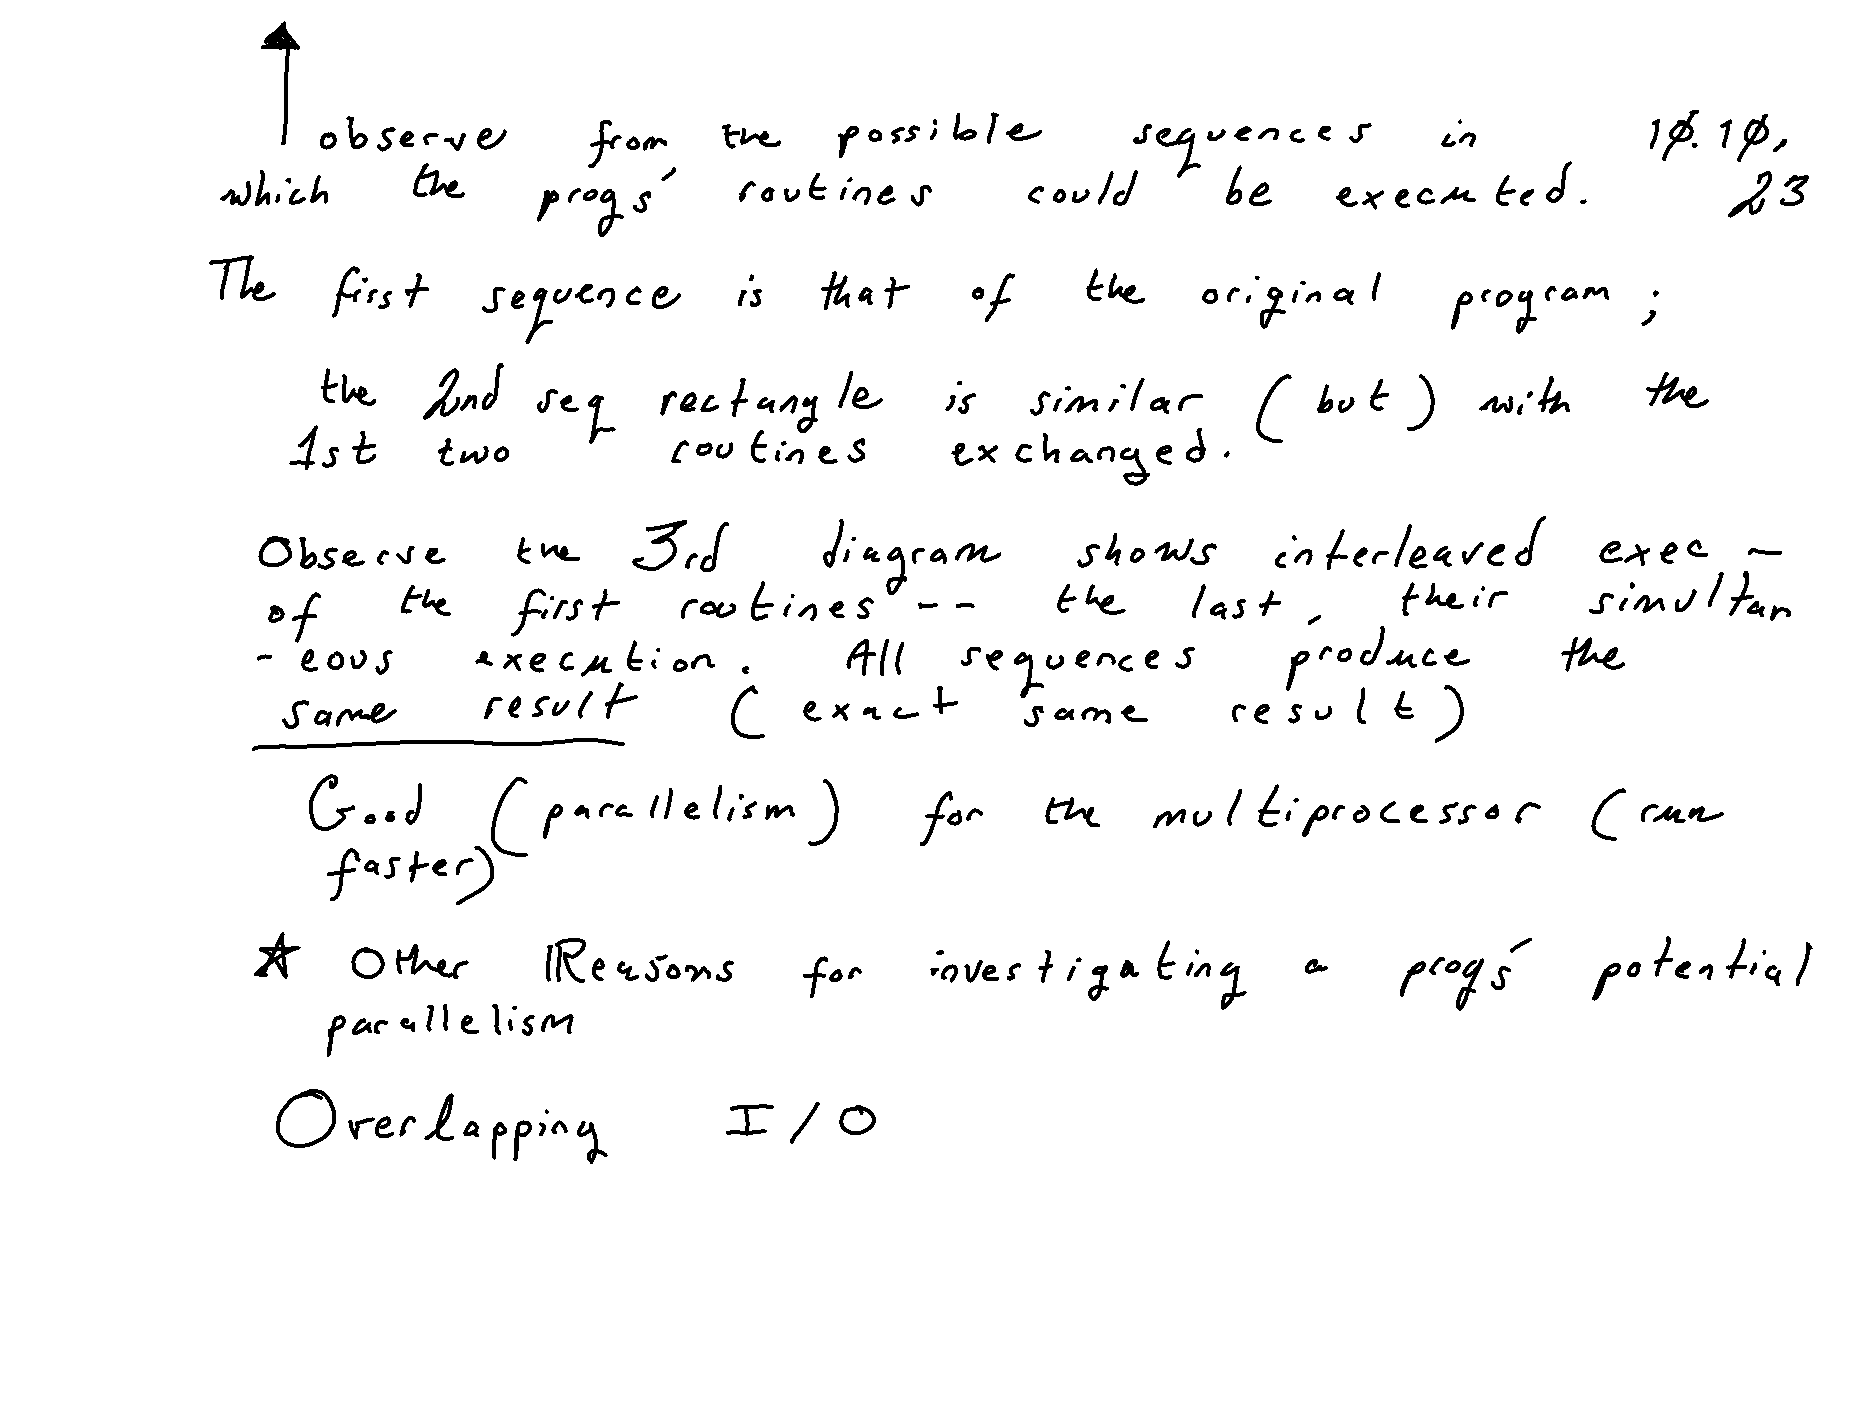 observe from the possible sequences in 10.10,
which the progs' routines could be executed. 23
The first sequence is that of the original program;
the 2nd seq rectangle is similar (but) with the
1st two routines exchanged.
Observe the 3rd diagram shows interleaved exec -
of the first routines -- the last, their simultan
-eous execution. All sequences produce the
same result (exact same result)
Good (parallelism) for the multiprocessor (run
faster)
☆ Other Reasons for investigating a progs' potential
parallelism
Overlapping I/O